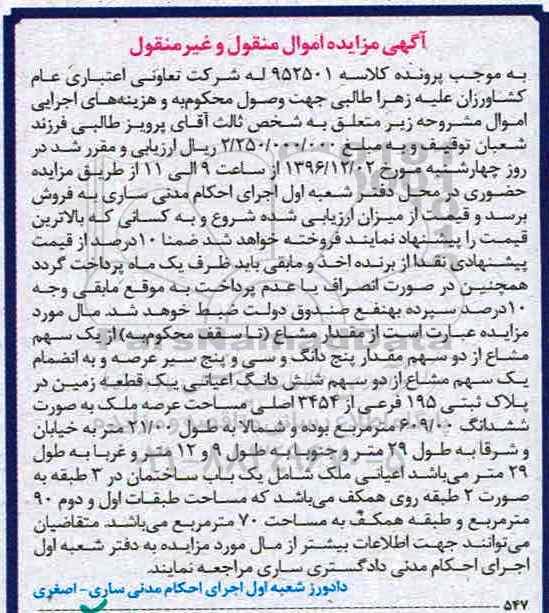 آگهی مزایده اموال منقول و غیر منقول
به موجب پرونده کلاسه ۹۵۲۵۰۱ له شرکت تعاونی اعتباری عام
کشاورزان علیه زهرا طالبی جهت وصول محکوم‌به و هزینه‌های اجرایی
اموال مشروحه زیر متعلق به شخص ثالث آقای پرویز طالبی فرزند
شعبان توقیف و به مبلغ ۲/۲۵۰/۰۰۰/۰۰۰ ریال ارزیابی و مقرر شد در
روز چهارشنبه مورخ ۱۳۹۶/۱۲/۰۲ از ساعت ۹ الی ۱۱ از طریق مزایده
حضوری در محل دفتر شعبه اول اجرای احکام مدنی ساری به فروش
برسد و قیمت از میزان ارزیابی شده شروع و به کسانی که بالاترین
قیمت را پیشنهاد نمایند فروخته خواهد شد ضمنا ۱۰درصد از قیمت
پیشنهادی نقدا از برنده اخذ و مابقی باید ظرف یک ماه پرداخت گردد
همچنین در صورت انصراف یا عدم پرداخت به موقع مابقی وجه
۱۰درصد سپرده بهنفع صندوق دولت ضبط خواهد شد. مال مورد
مزایده عبارت است از مقدار مشاع (تا سقف محکوم‌به) از یک سهم
مشاع از دو سهم مقدار پنج دانگ و سی و پنج سیر عرصه و به انضمام
یک سهم مشاع از دو سهم شش دانگ اعیانی یبک قطعه زمین در
پلاک ثبتی ۱۹۵ فرعی از ۳۴۵۴ اصلی مساحت عرصه ملک به صورت
ششدانگ ۶۰۹/۰۰ مترمربع بوده و شمالا به طول ۲۱/۰۰ متر به خیابان
و شرقا به طول ۲۹ متر و جنوبا به طول ۹ و ۱۲ متر و غربا به طول
۲۹ متر می‌باشد اعیانی ملک شامل یک باب ساختمان در ۳ طبقه به
صورت ۲ طبقه روی همکف می‌باشد که مساحت طبقات اول و دوم ۹۰
مترمربع و طبقه همکف به مساحت ۷۰ مترمربع می‌باشد. متقاضیان
می‌توانند جهت اطلاعات بیشتر از مال مورد مزایده به دفتر شعبه اول
اجرای احکام مدنی دادگستری ساری مراجعه نمایند.
دادورز شعبه اول اجرای احکام مدنی ساری- اصغری
۵۴۷